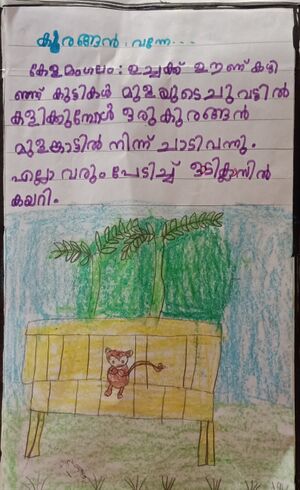 കുരങ്ങൻ വന്നേ...
കേളമംഗലം: ഉച്ചക്ക് ഊണ് കഴി
ഞ്ഞ് കുട്ടികൾ മുളയുടെ ചുവട്ടിൽ
കളിക്കുമ്പോൾ ഒരു കുരങ്ങൻ
മുളങ്കാട്ടിൽ നിന്ന് ചാടി വന്നു.
എല്ലാ വരും പേടിച്ച്
കയറി.